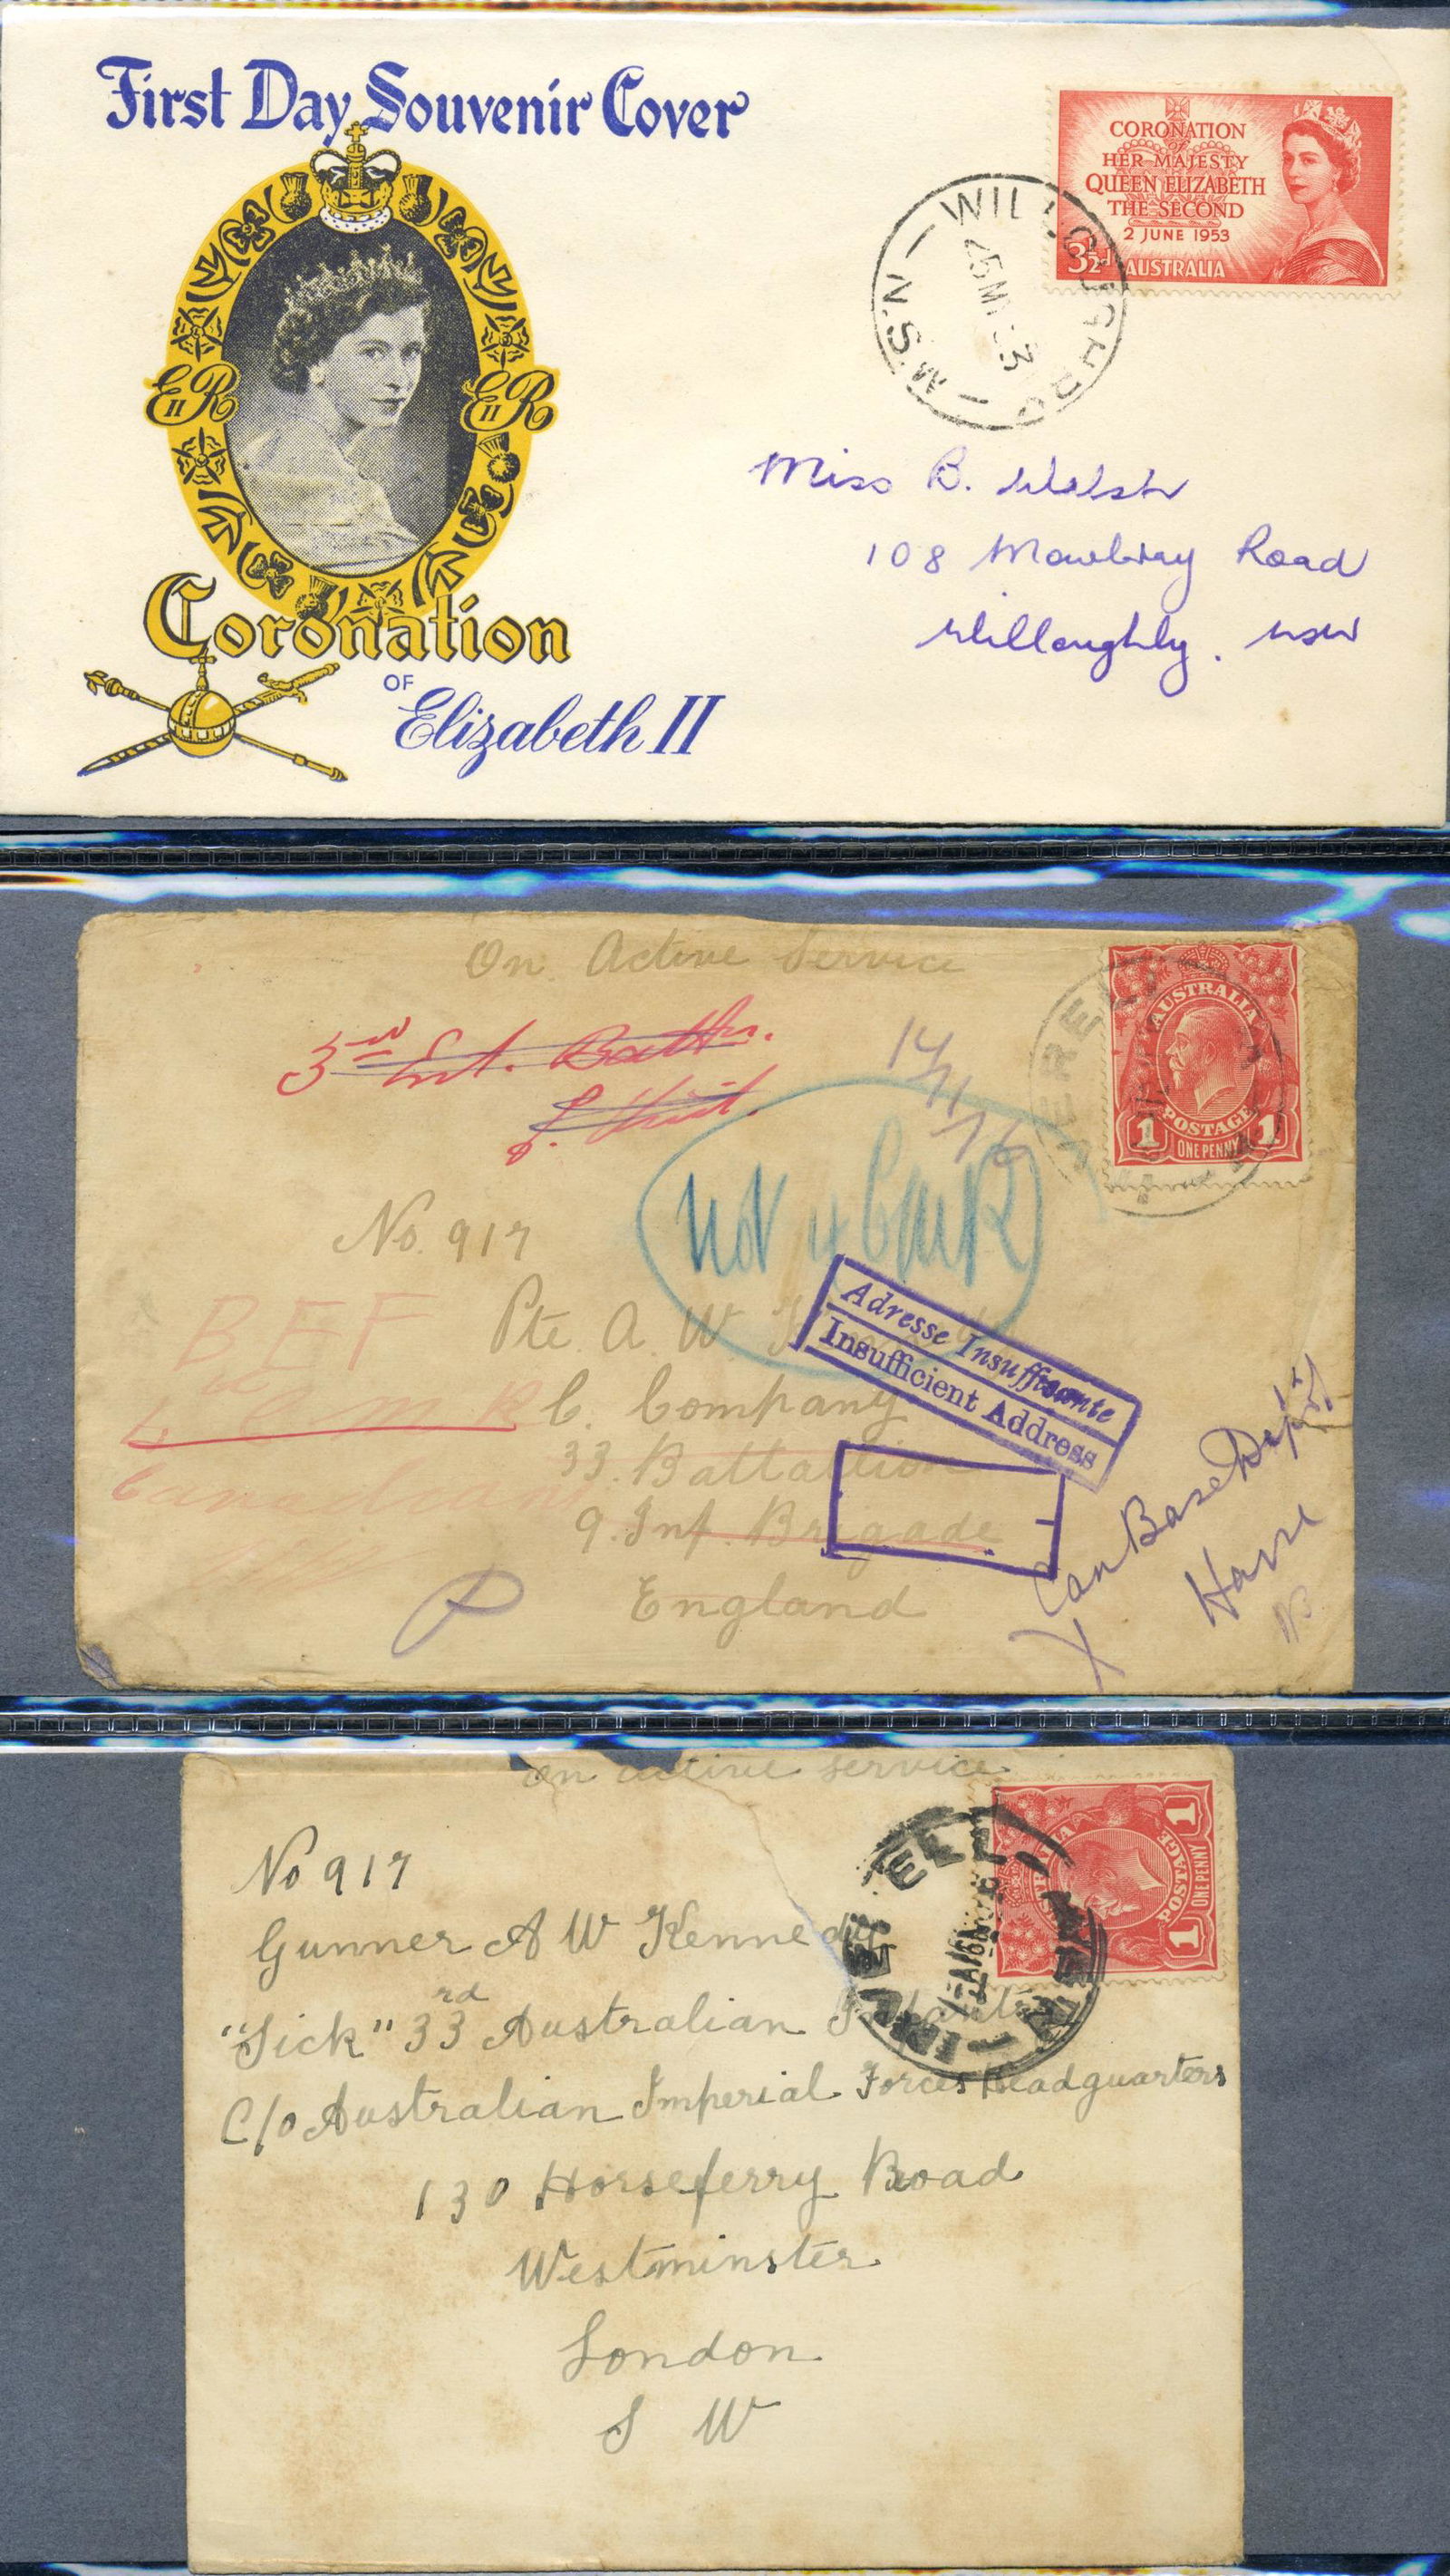 First Day Souvenir Cover
CORONATION
OF
HER MAJESTY
QUEEN ELIZABETH
THE SECOND
2 JUNE 1953
3½d AUSTRALIA
WILLOUGHBY
25 MY 53
N.S.W
E II R
E II R
Miss B. Welsh
108 Mowbray Road
Willoughby. NSW
Coronation
OF
Elizabeth II
On Active Service
3rd Batt.
14/11/16
AUSTRALIA
POSTAGE
1 ONE PENNY 1
No. 917
B E F
Pte. A. W.
Adresse Insuffisante
Insufficient Address
C. Company
33. Battallion
9. Inf. Brigade
England
Can Base Depot
Havre
On active service
No 917
Gunner A W Kennedy
"Sick" 33rd Australian Infantry
C/o Australian Imperial Forces Headquarters
130 Horseferry Road
Westminster
London
S W
INVERELL
POSTAGE
1 ONE PENNY 1